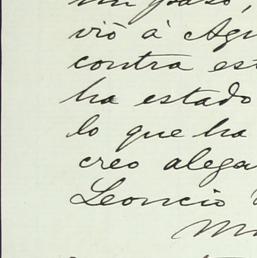 un paso,
vió á Agu
contra est
ha estado
lo que ha
creo alega
Leoncio